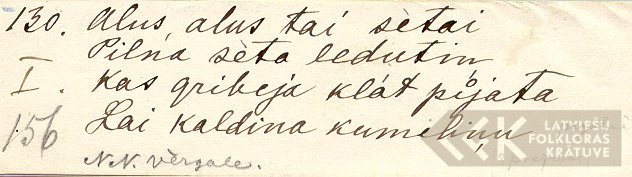 130. Alus, alus tai sètai
Pilna sèta ledutiņ
I. Kas gribeja klát pijata
156 Lai kaldina kumeliņu
N.N. Vèrgale.
LATVIEŠU
FOLKLORAS
KRĀTUVE